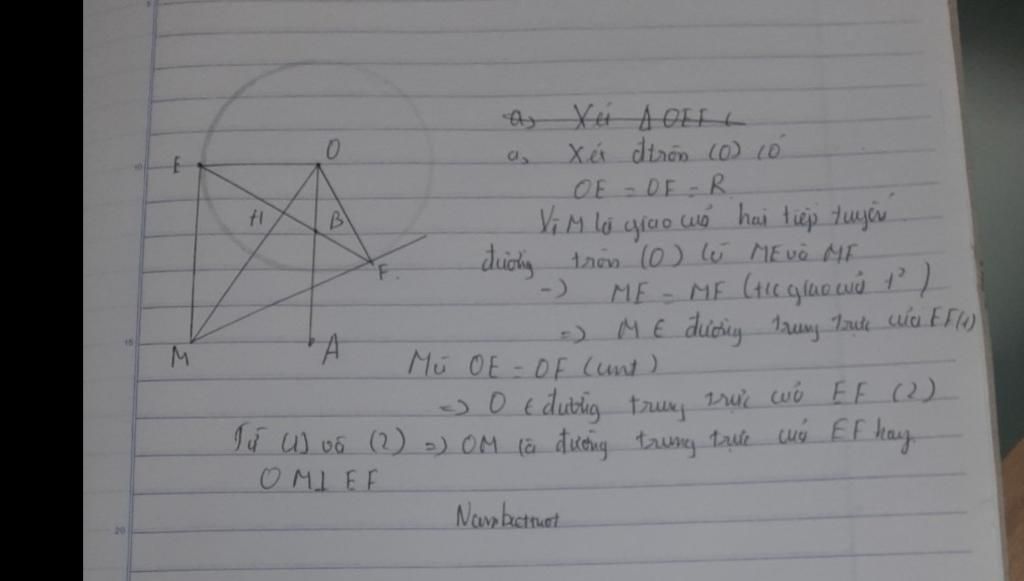 a, Xét Δ OEF (
a, Xét đtròn (O) có
OE = OF = R
Vì M là giao cuả hai tiếp tuyến
đường tròn (O) là ME và MF
-) ME = MF (t/c giao cuả t²)
=> M ∈ đường trung trực của EF (1)
Mà OE = OF (cmt)
=> O ∈ đường trung trực cuả EF (2)
Từ (1) và (2) => OM là đường trung trực cuả EF hay
OM ⊥ EF
E
O
H
B
F.
M
A
10
15
20